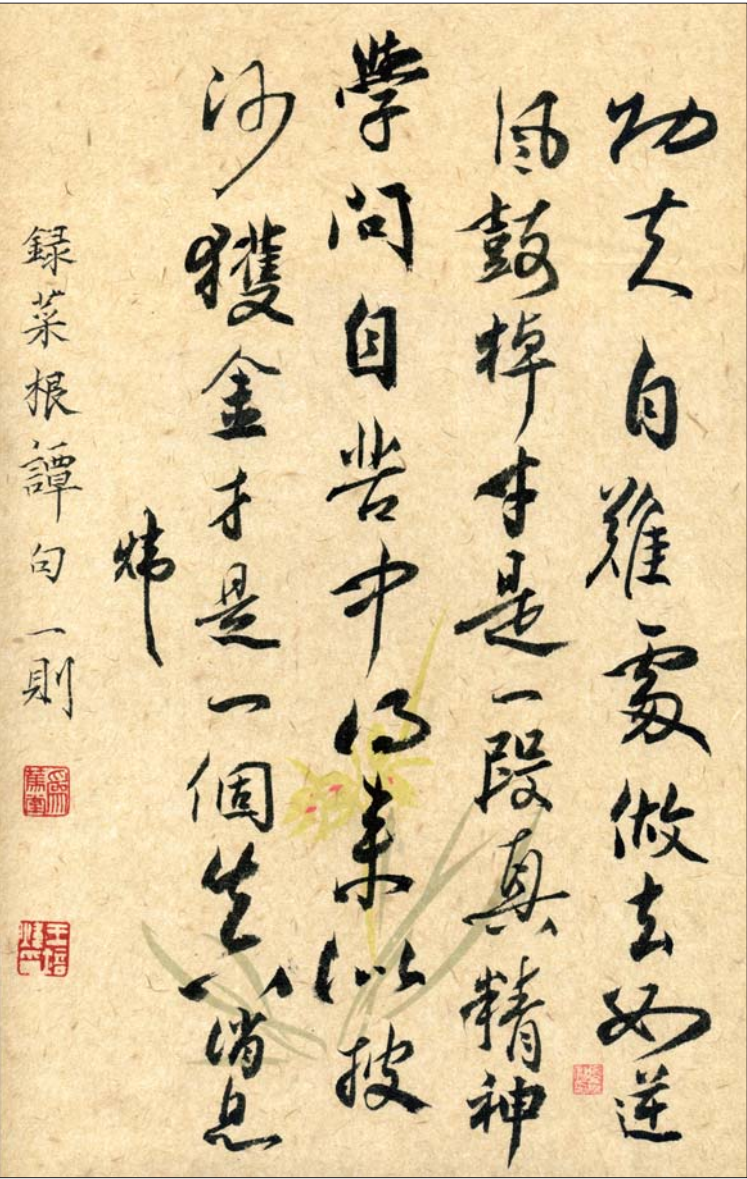 功夫自難處做去如逆
風鼓棹才是一段真精神
學問自苦中得来似披
沙獲金才是一個真消息
煒
録菜根譚句一則